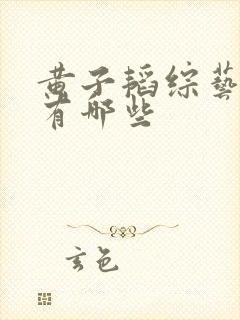 黄子韬综藝
有哪些
玄色